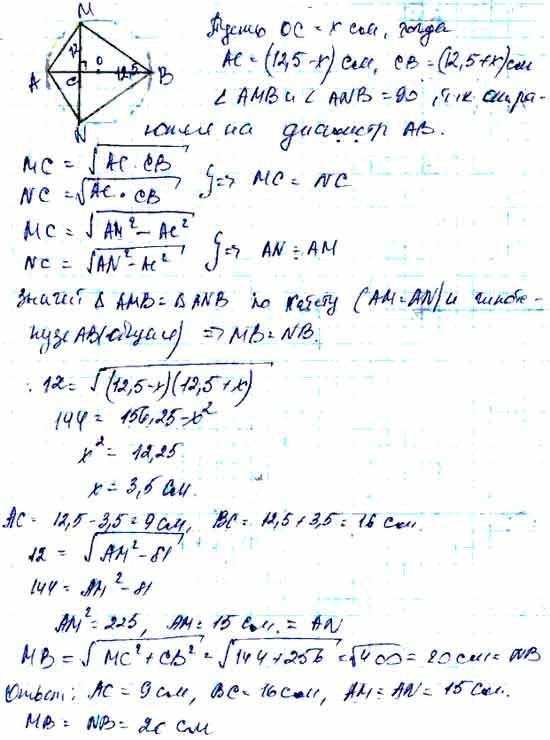 M
12
A C O 12,5 B
N
Пусть OC = x см, тогда
AC = (12,5-x) см, CB = (12,5+x) см
∠ AMB и ∠ ANB = 90, т.к опира-
ются на диаметр AB.
MC = √AC · CB
NC = √AC · CB } => MC = NC
MC = √AM² - AC²
NC = √AN² - AC² } => AN = AM
Значит Δ AMB = Δ ANB по катету (AM=AN) и гипоте-
нузе AB (общая) => MB = NB.
12 = √(12,5-x)(12,5+x)
144 = 156,25 - x²
x² = 12,25
x = 3,5 см.
AC = 12,5 - 3,5 = 9 см, BC = 12,5 + 3,5 = 16 см.
12 = √AM² - 81
144 = AM² - 81
AM² = 225, AM = 15 см. = AN
MB = √MC² + CB² = √144 + 256 = √400 = 20 см = NB
Ответ: AC = 9 см, BC = 16 см, AM = AN = 15 см.
MB = NB = 20 см